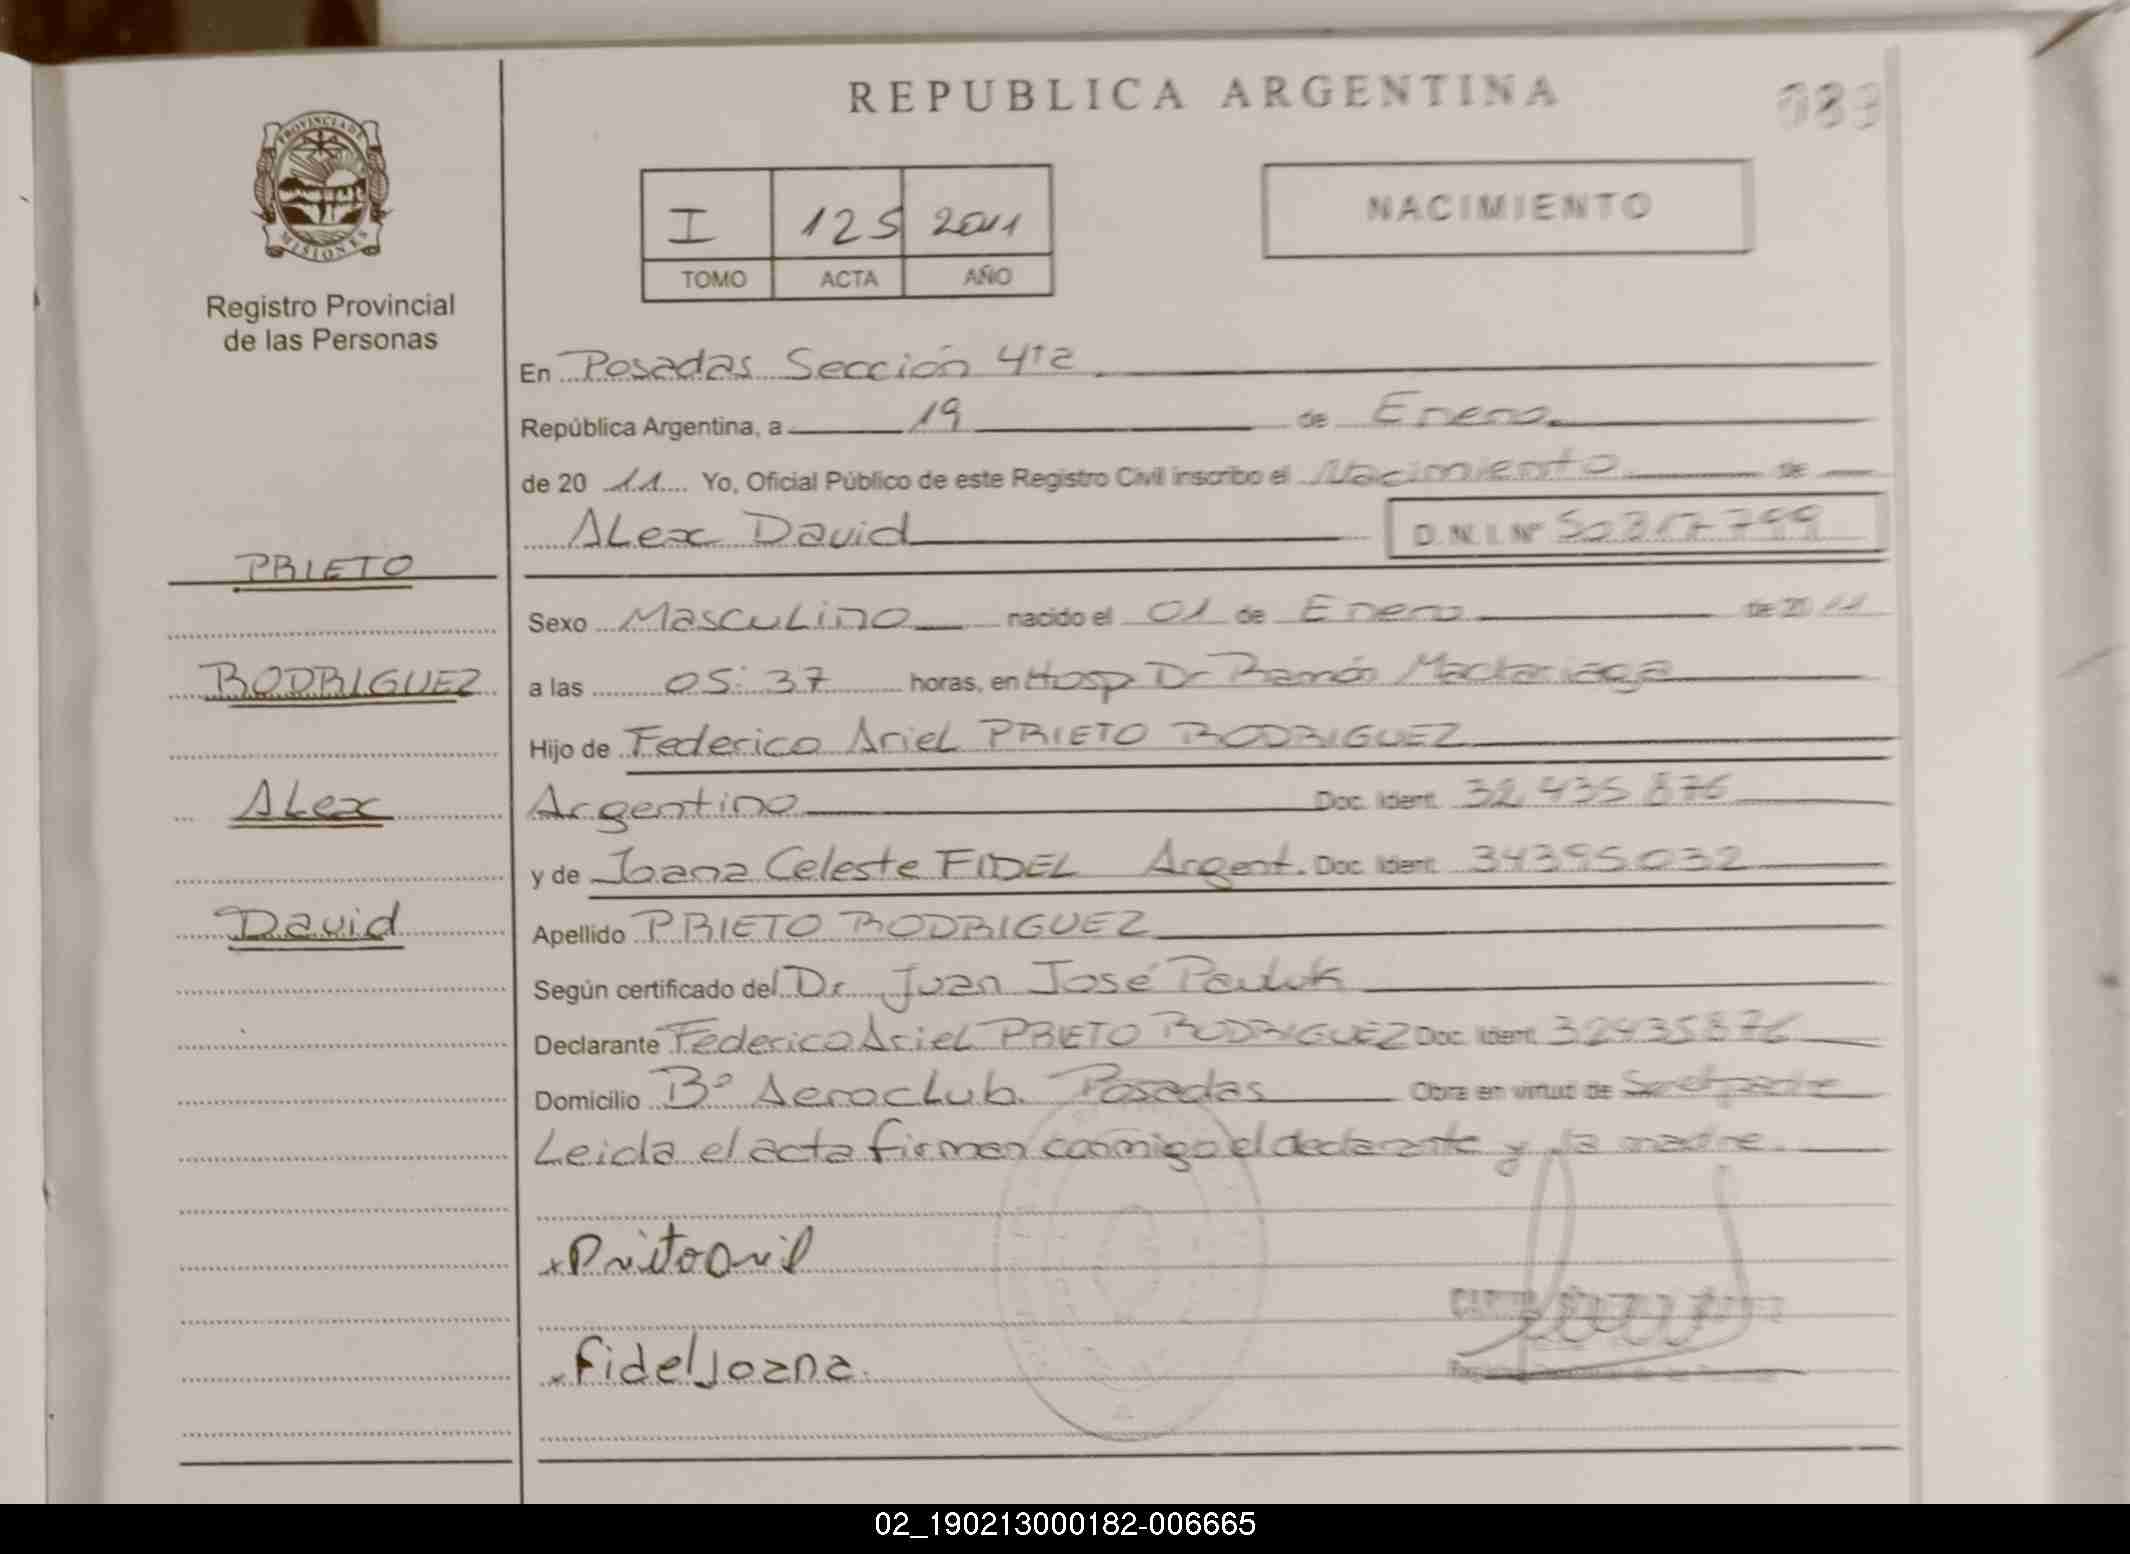 REPUBLICA ARGENTINA
083
PROVINCIA DE
MISIONES
Registro Provincial
de las Personas
I 125 2011
TOMO ACTA AÑO
NACIMIENTO
En Posadas Sección 4ta
República Argentina, a 19 de Enero
de 20 11 Yo, Oficial Público de este Registro Civil inscribo el Nacimiento de
ALex David D.N.I. Nº
PRIETO
Sexo MascuLino nacido el 01 de Enero de 20 11
RODRIGUEZ
a las 05:37 horas, en Hosp Dr Ramón Madariaga
Hijo de Federico Ariel PRIETO RODRIGUEZ
ALex
Argentino Doc. Ident. 32.435.876
y de Joana Celeste FIDEL Argent. Doc. Ident. 34395032
David
Apellido PRIETO RODRIGUEZ
Según certificado del Dr. Juan José
Declarante Federico Ariel PRIETO RODRIGUEZ Doc. Ident. 32435876
Domicilio Bº Aeroclub. Posadas Obra en virtud de
Leida el acta firman conmigo el declarante y la madre.
x Fidel Joana.
02_190213000182-006665